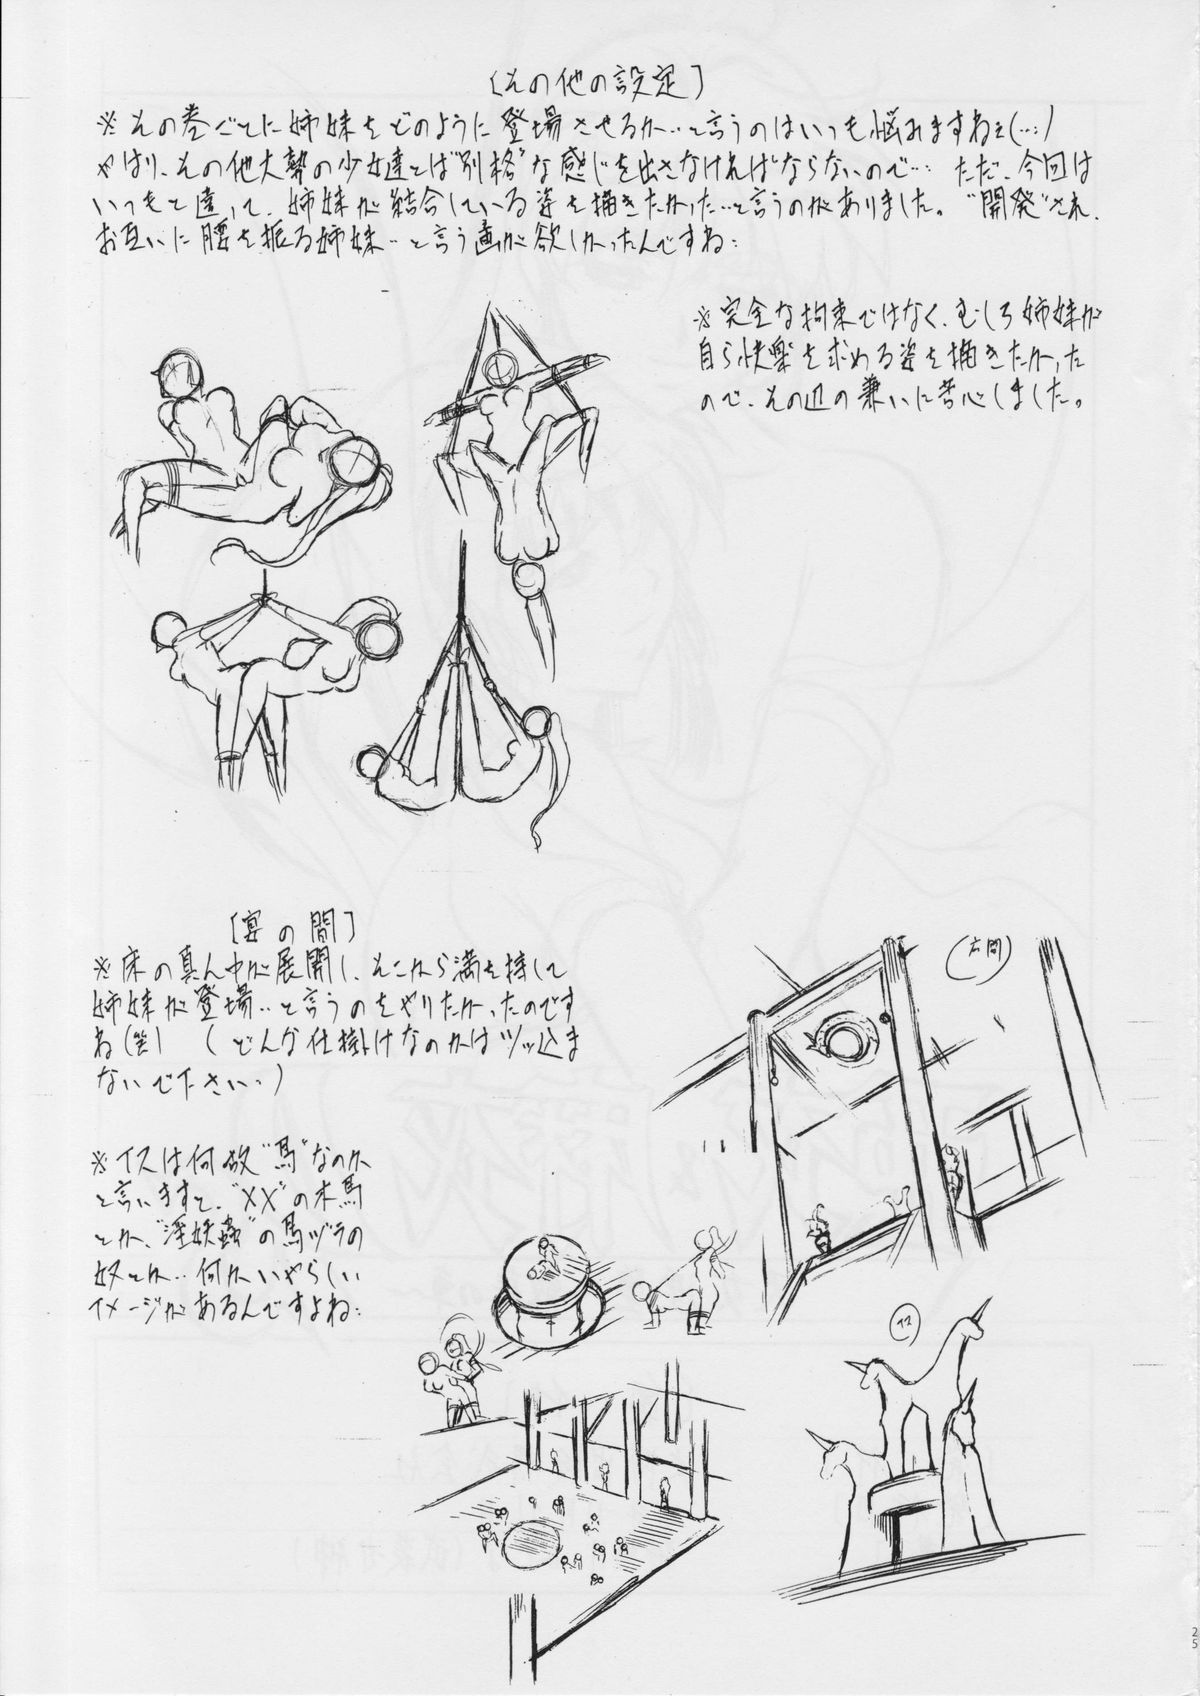 [その他の設定]
※その巻ごとに姉妹をどのように登場させるか‥と言うのはいつも悩みますねぇ(…;)
やはり、その他大勢の少女達とは"別格"な感じを出さなければならないので… ただ、今回は
いつもと違って、姉妹が結合している姿を描きたかった‥と言うのがありました。"開発"され、
お互いに腰を振る姉妹‥と言う画が欲しかったんですね;
※完全な拘束ではなく、むしろ姉妹が
自ら快楽を求める姿を描きたかった
ので、その辺の兼いに苦心しました。
[宴の間]
※床の真ん中が展開し、そこから満を持して
姉妹が登場‥と言うのをやりたかったのです
ね(笑) (どんな仕掛けなのかはツッ込ま
ないで下さい‥)
※イスは何故"馬"なのか
と言いますと、"××"の木馬
とか、"淫妖蟲"の馬ヅラの
奴とか‥何かいやらしい
イメージがあるんですよね;
25